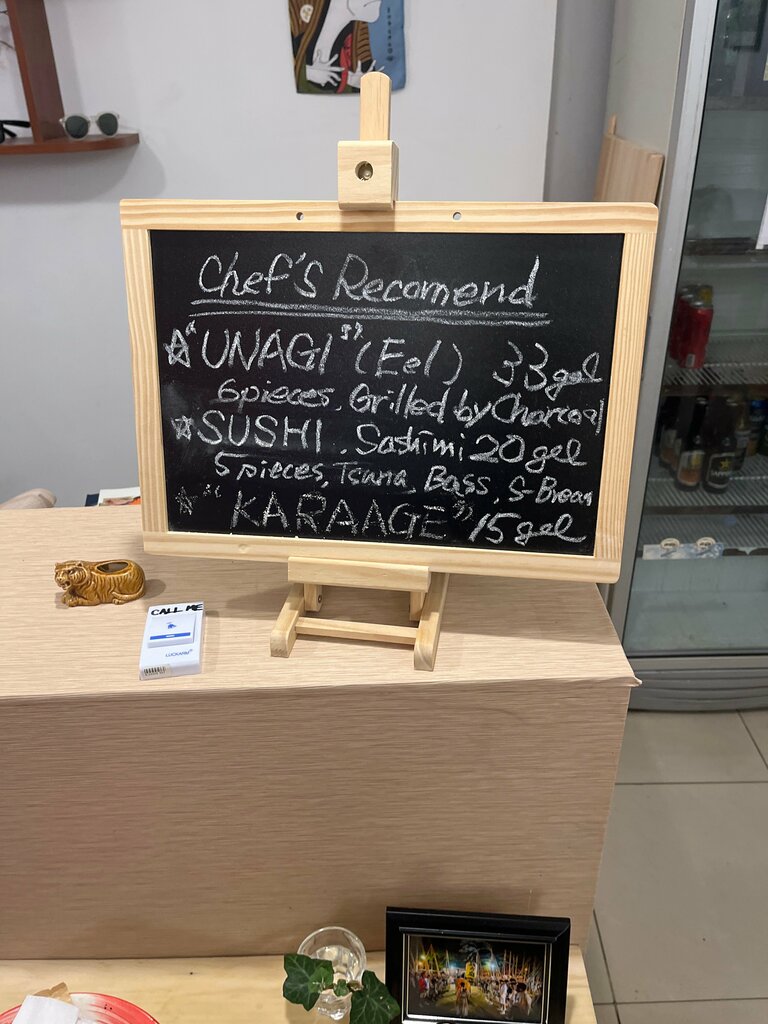 Chef's Recomend
☆"UNAGI" (Eel) 33gel
6pieces, Grilled by Charcoal
☆SUSHI. Sashimi 20gel
5pieces, Tsuna, Bass, S-Bream
☆"KARAAGE" 15gel
CALL ME
LUCKARM